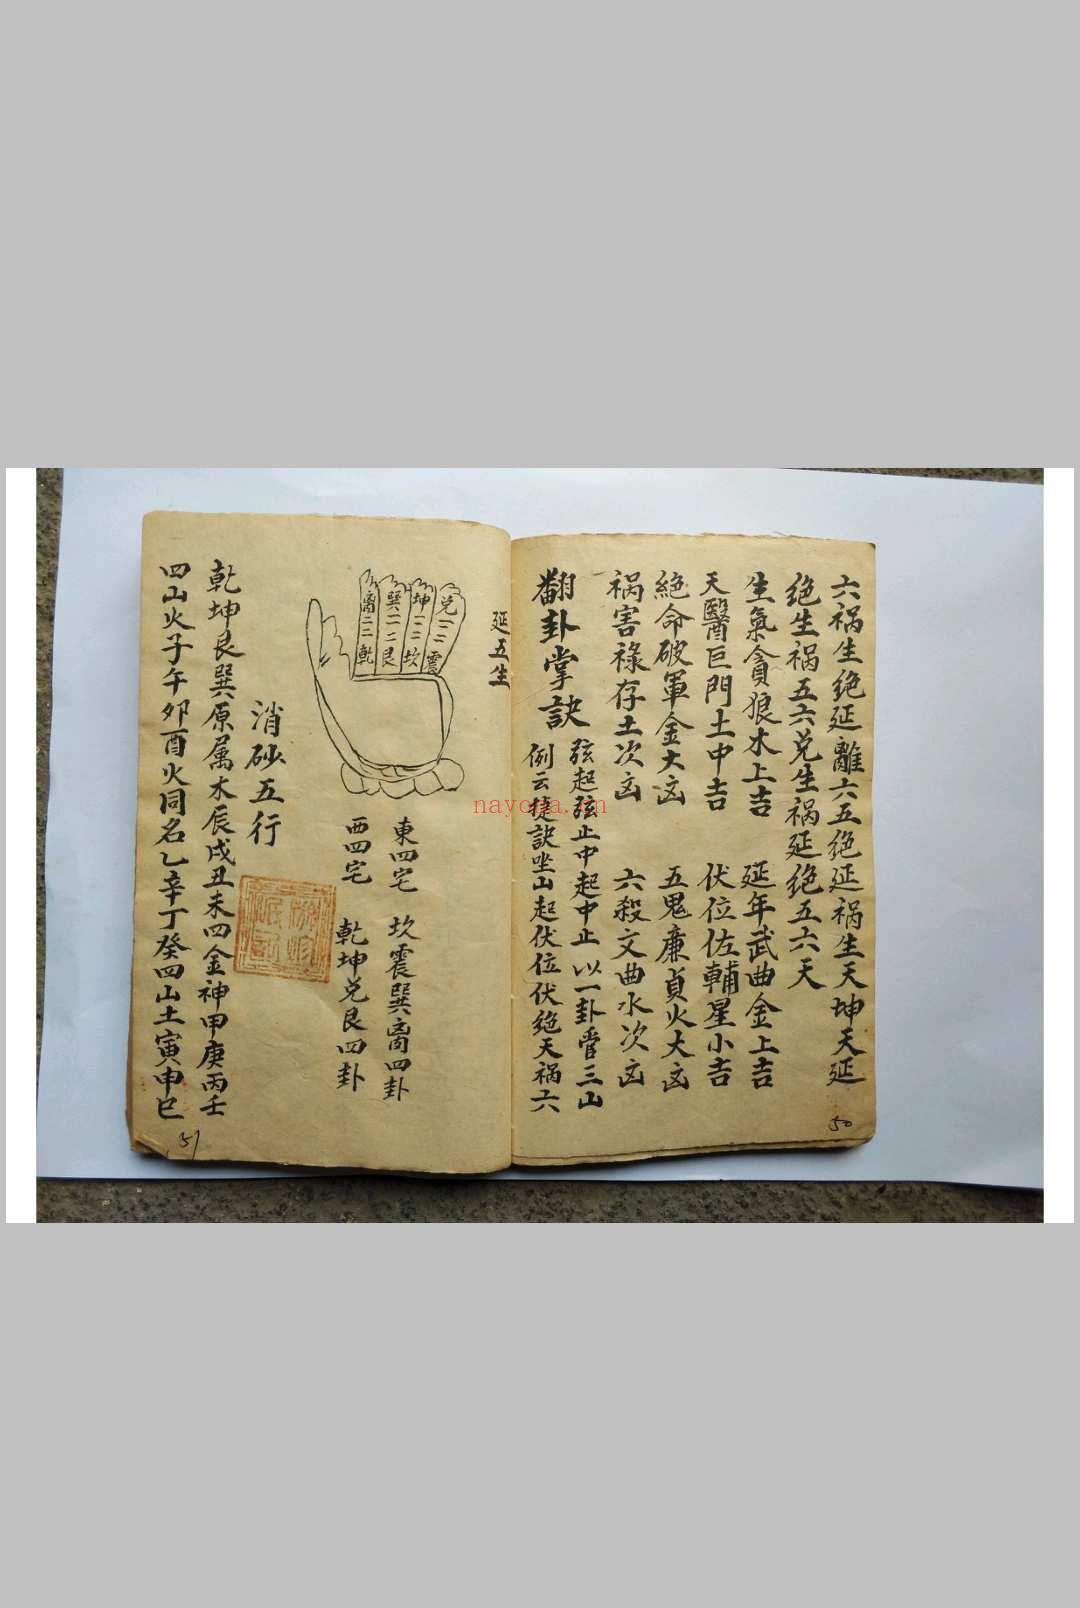 六祸生绝延離六五绝延祸生天坤天延
绝生祸五六兑生祸延绝五六天
生氣貪狼木上吉 延年武曲金上吉
天醫巨門土中吉 伏位佐輔星小吉
絕命破軍金大凶 五鬼廉貞火大凶
祸害祿存土次凶 六殺文曲水次凶
翻卦掌訣
弦起弦止中起中止 以一卦管三山
例云捷訣坐山起伏位伏绝天祸六
延五生
兑 二 三 震
坤 一 二 坎
巽 一 二 艮
離 二 三 乾
東四宅 坎震巽離四卦
西四宅 乾坤兑艮四卦
消砂五行
乾坤艮巽原属木辰戌丑未四金神甲庚丙壬
四山火子午卯酉火同名乙辛丁癸四山土寅申巳
50
51
nayona.cn